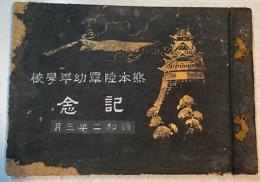 熊本陸軍幼年學校
記念
昭和二年三月